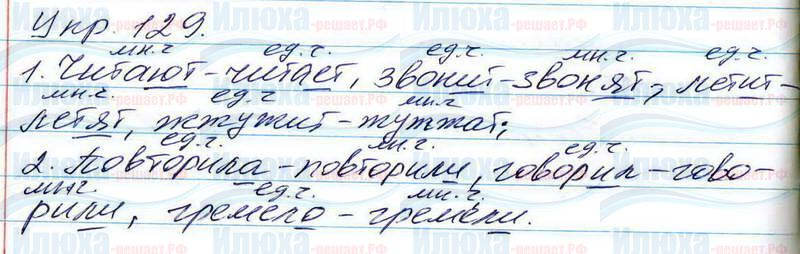 Упр. 129.
мн.ч. ед.ч. ед.ч. мн.ч. ед.ч.
1. Читают - читает, звонит - звонят, летит -
мн.ч. ед.ч. мн.ч.
летят, жжужит - жужжат;
ед.ч. мн.ч. ед.ч.
2. Повторила - повторили, говорил - гово-
мн.ч. ед.ч. мн.ч.
рили, гремело - гремели.
Илюха -решает.РФ